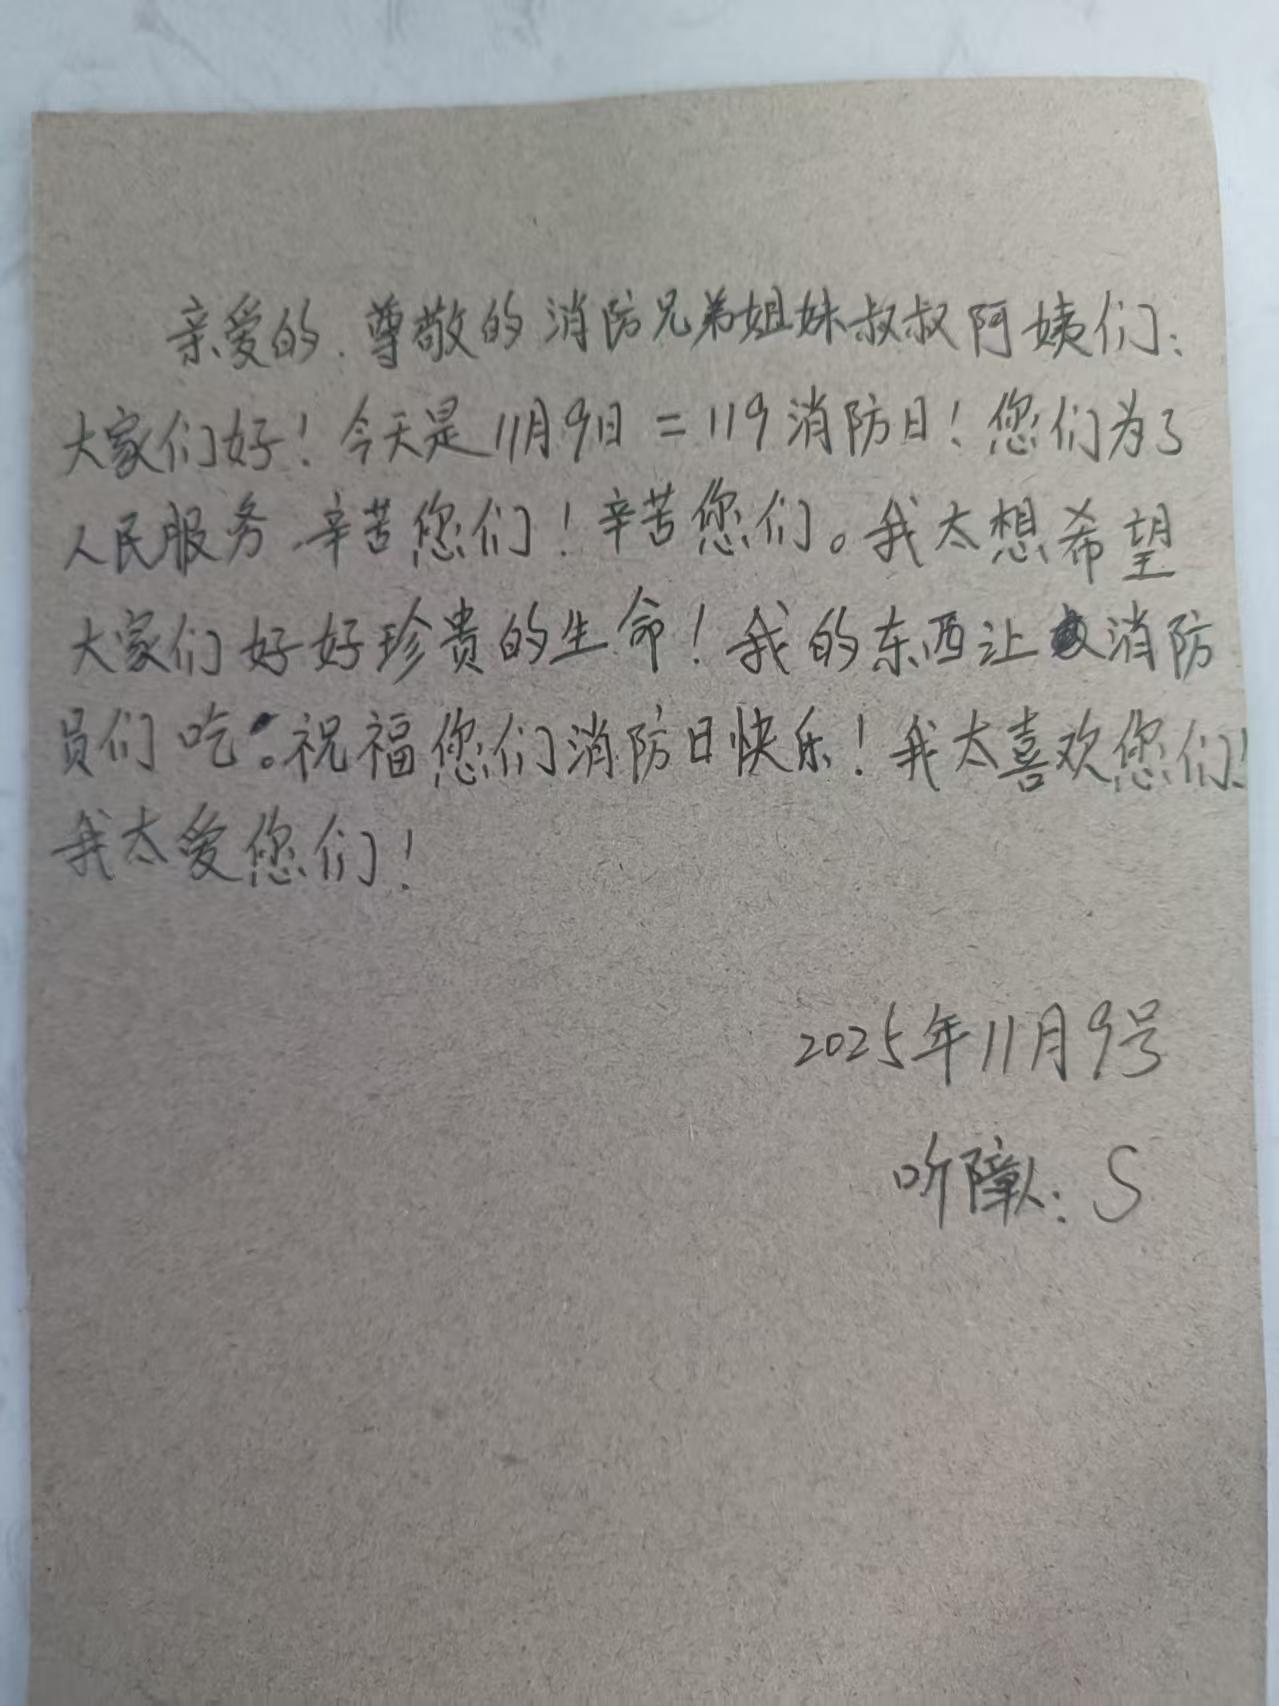 亲爱的、尊敬的消防兄弟姐妹叔叔阿姨们：
大家们好！今天是11月9日=119消防日！您们为了
人民服务、辛苦您们！辛苦您们。我太想希望
大家们好好珍贵的生命！我的东西让消防
员们吃。祝福您们消防日快乐！我太喜欢您们！
我太爱您们！
2025年11月9号
听障人：S